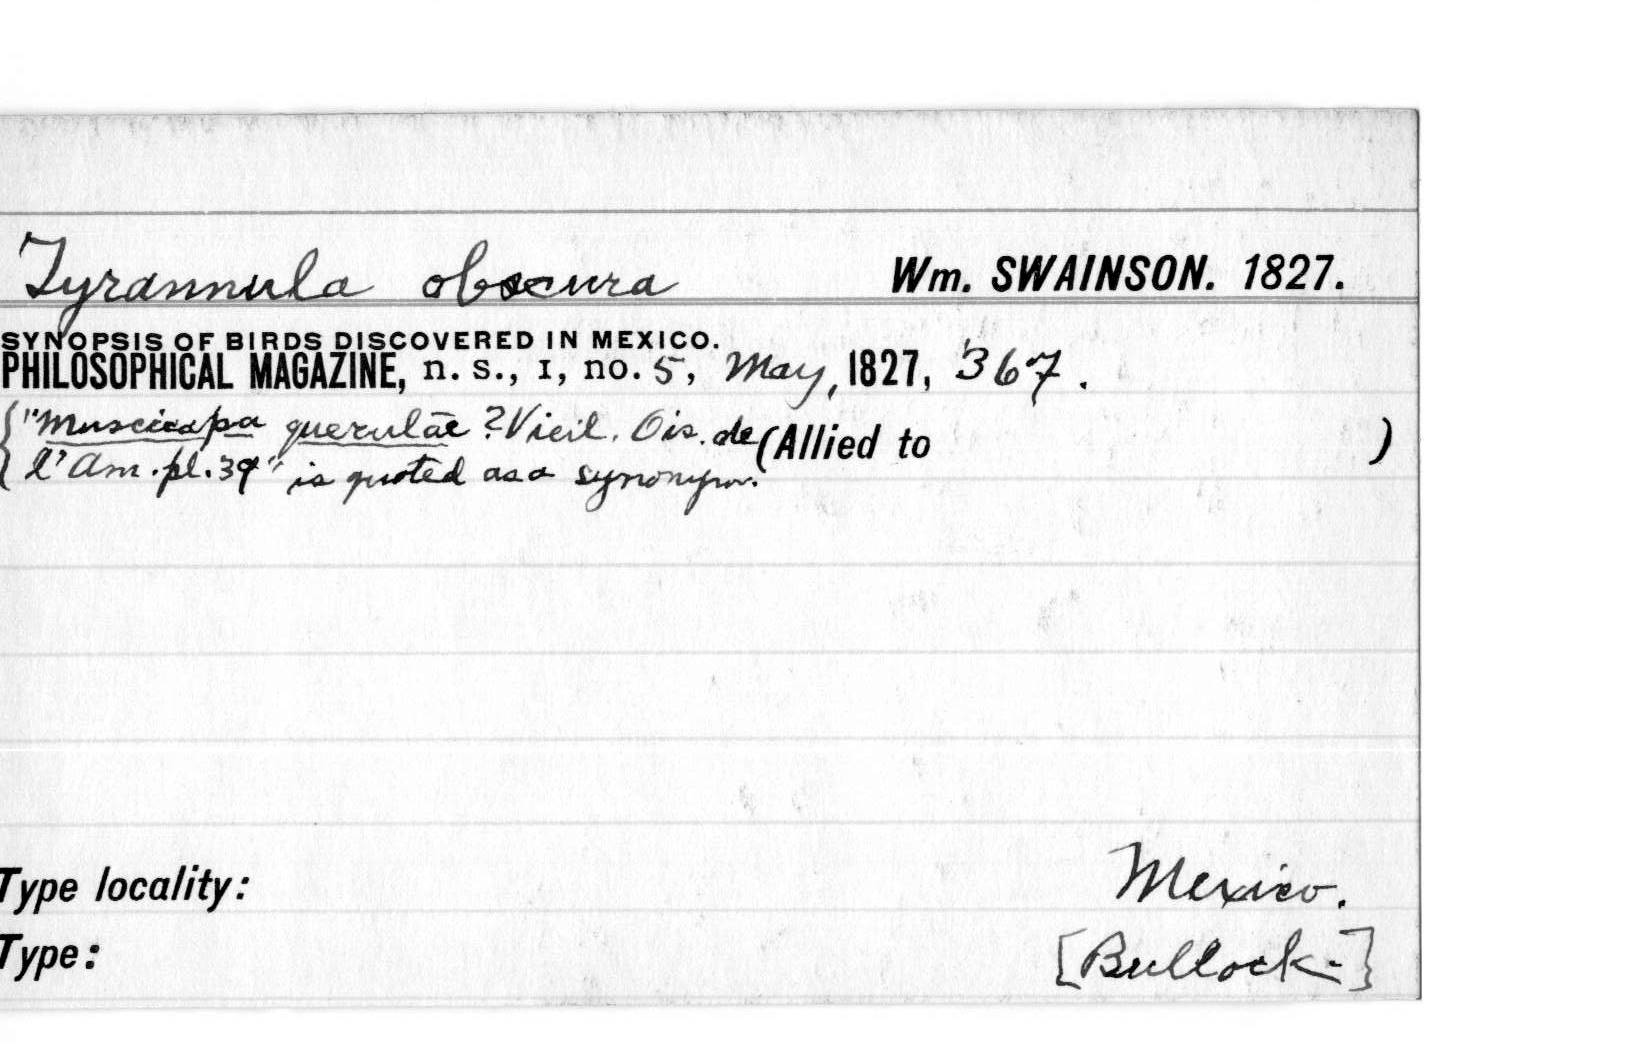 Tyrannula obscura Wm. SWAINSON. 1827.
SYNOPSIS OF BIRDS DISCOVERED IN MEXICO.
PHILOSOPHICAL MAGAZINE, n. s., I, no. 5, May, 1827, 367.
{"Muscicapa querulāe ? Vieil. Ois. de (Allied to )
l'Am. pl. 39" is quoted as a synonym.
Type locality: Mexico.
Type: [Bullock.]